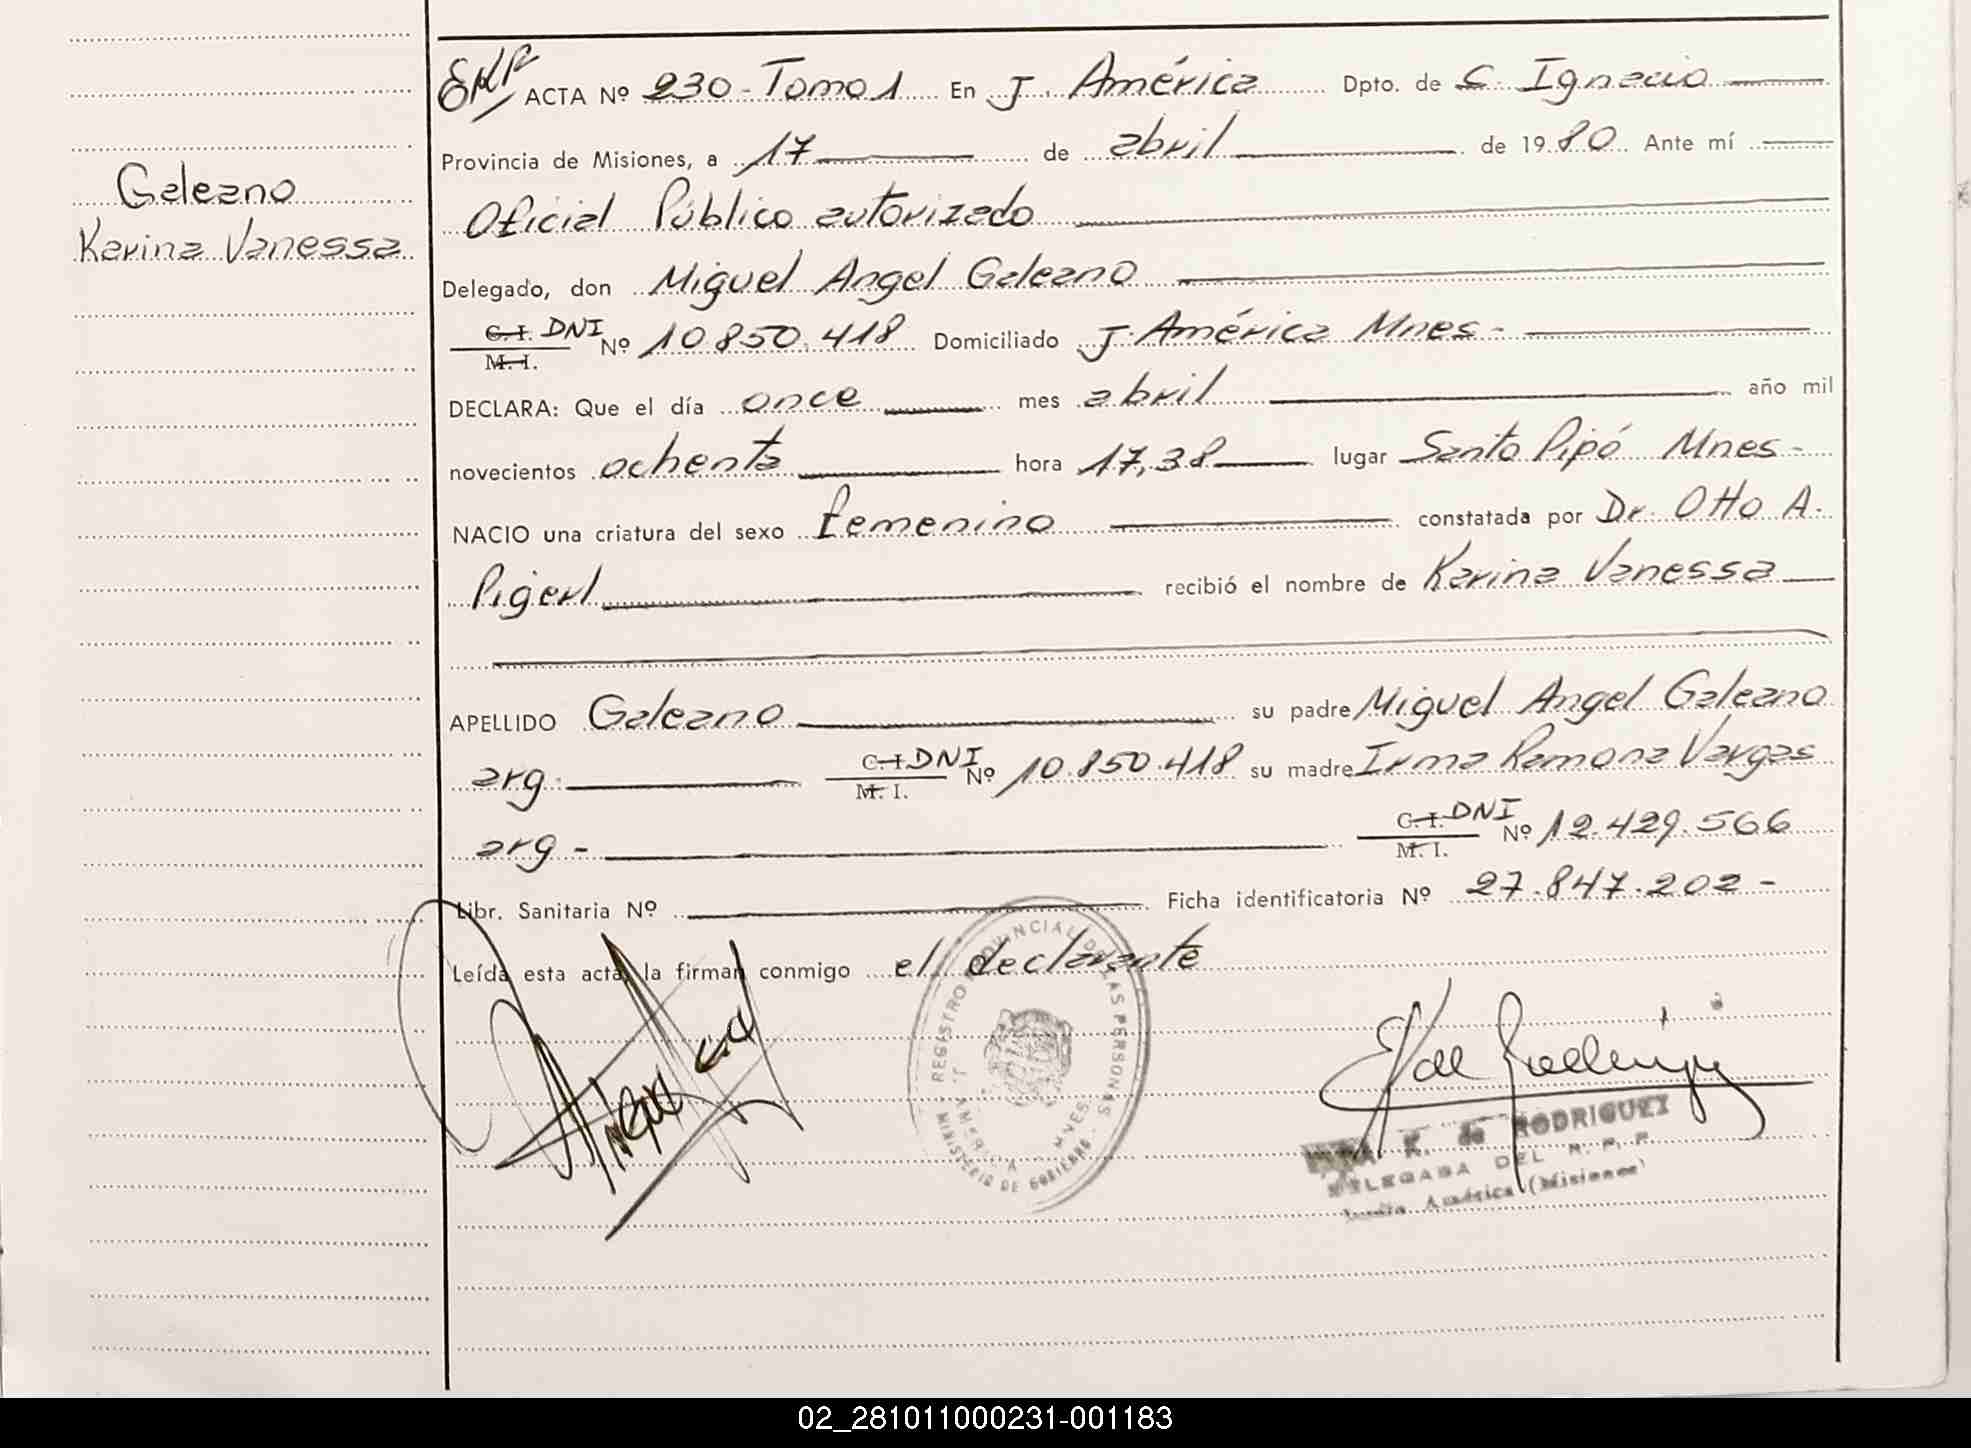 Galeano
Karina Vanessa
ACTA Nº 230 - Tomo 1 En J. América Dpto. de S. Ignacio
Provincia de Misiones, a 17 de abril de 1980. Ante mí
Oficial Público autorizado
Delegado, don Miguel Angel Galeano
C. I. DNI
M. I. Nº 10.850.418 Domiciliado J. América Mnes-
DECLARA: Que el día once mes abril año mil
novecientos ochenta hora 17,38 lugar Santo Pipó Mnes-
NACIO una criatura del sexo femenino constatada por Dr. Otto A.
Pigerl recibió el nombre de Karina Vanessa
APELLIDO Galeano su padre Miguel Angel Galeano
arg. C. I. DNI
M. I. Nº 10.850.418 su madre Irma Ramona Vargas
arg - C. I. DNI
M. I. Nº 12.429.566
Libr. Sanitaria Nº Ficha identificatoria Nº 27.847.202-
Leída esta acta, la firman conmigo el declarante
REGISTRO PROVINCIAL DE LAS PERSONAS
J. AMERICA - MNES.
MINISTERIO DE GOBIERNO
K. de RODRIGUEZ
DELEGADA DEL R. P. P.
América (Misiones)
02_281011000231-001183